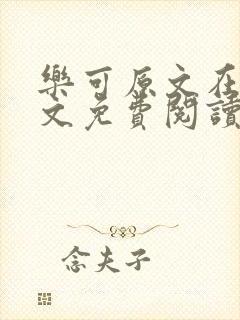 樂可原文在
文免費閱讀
念夫子